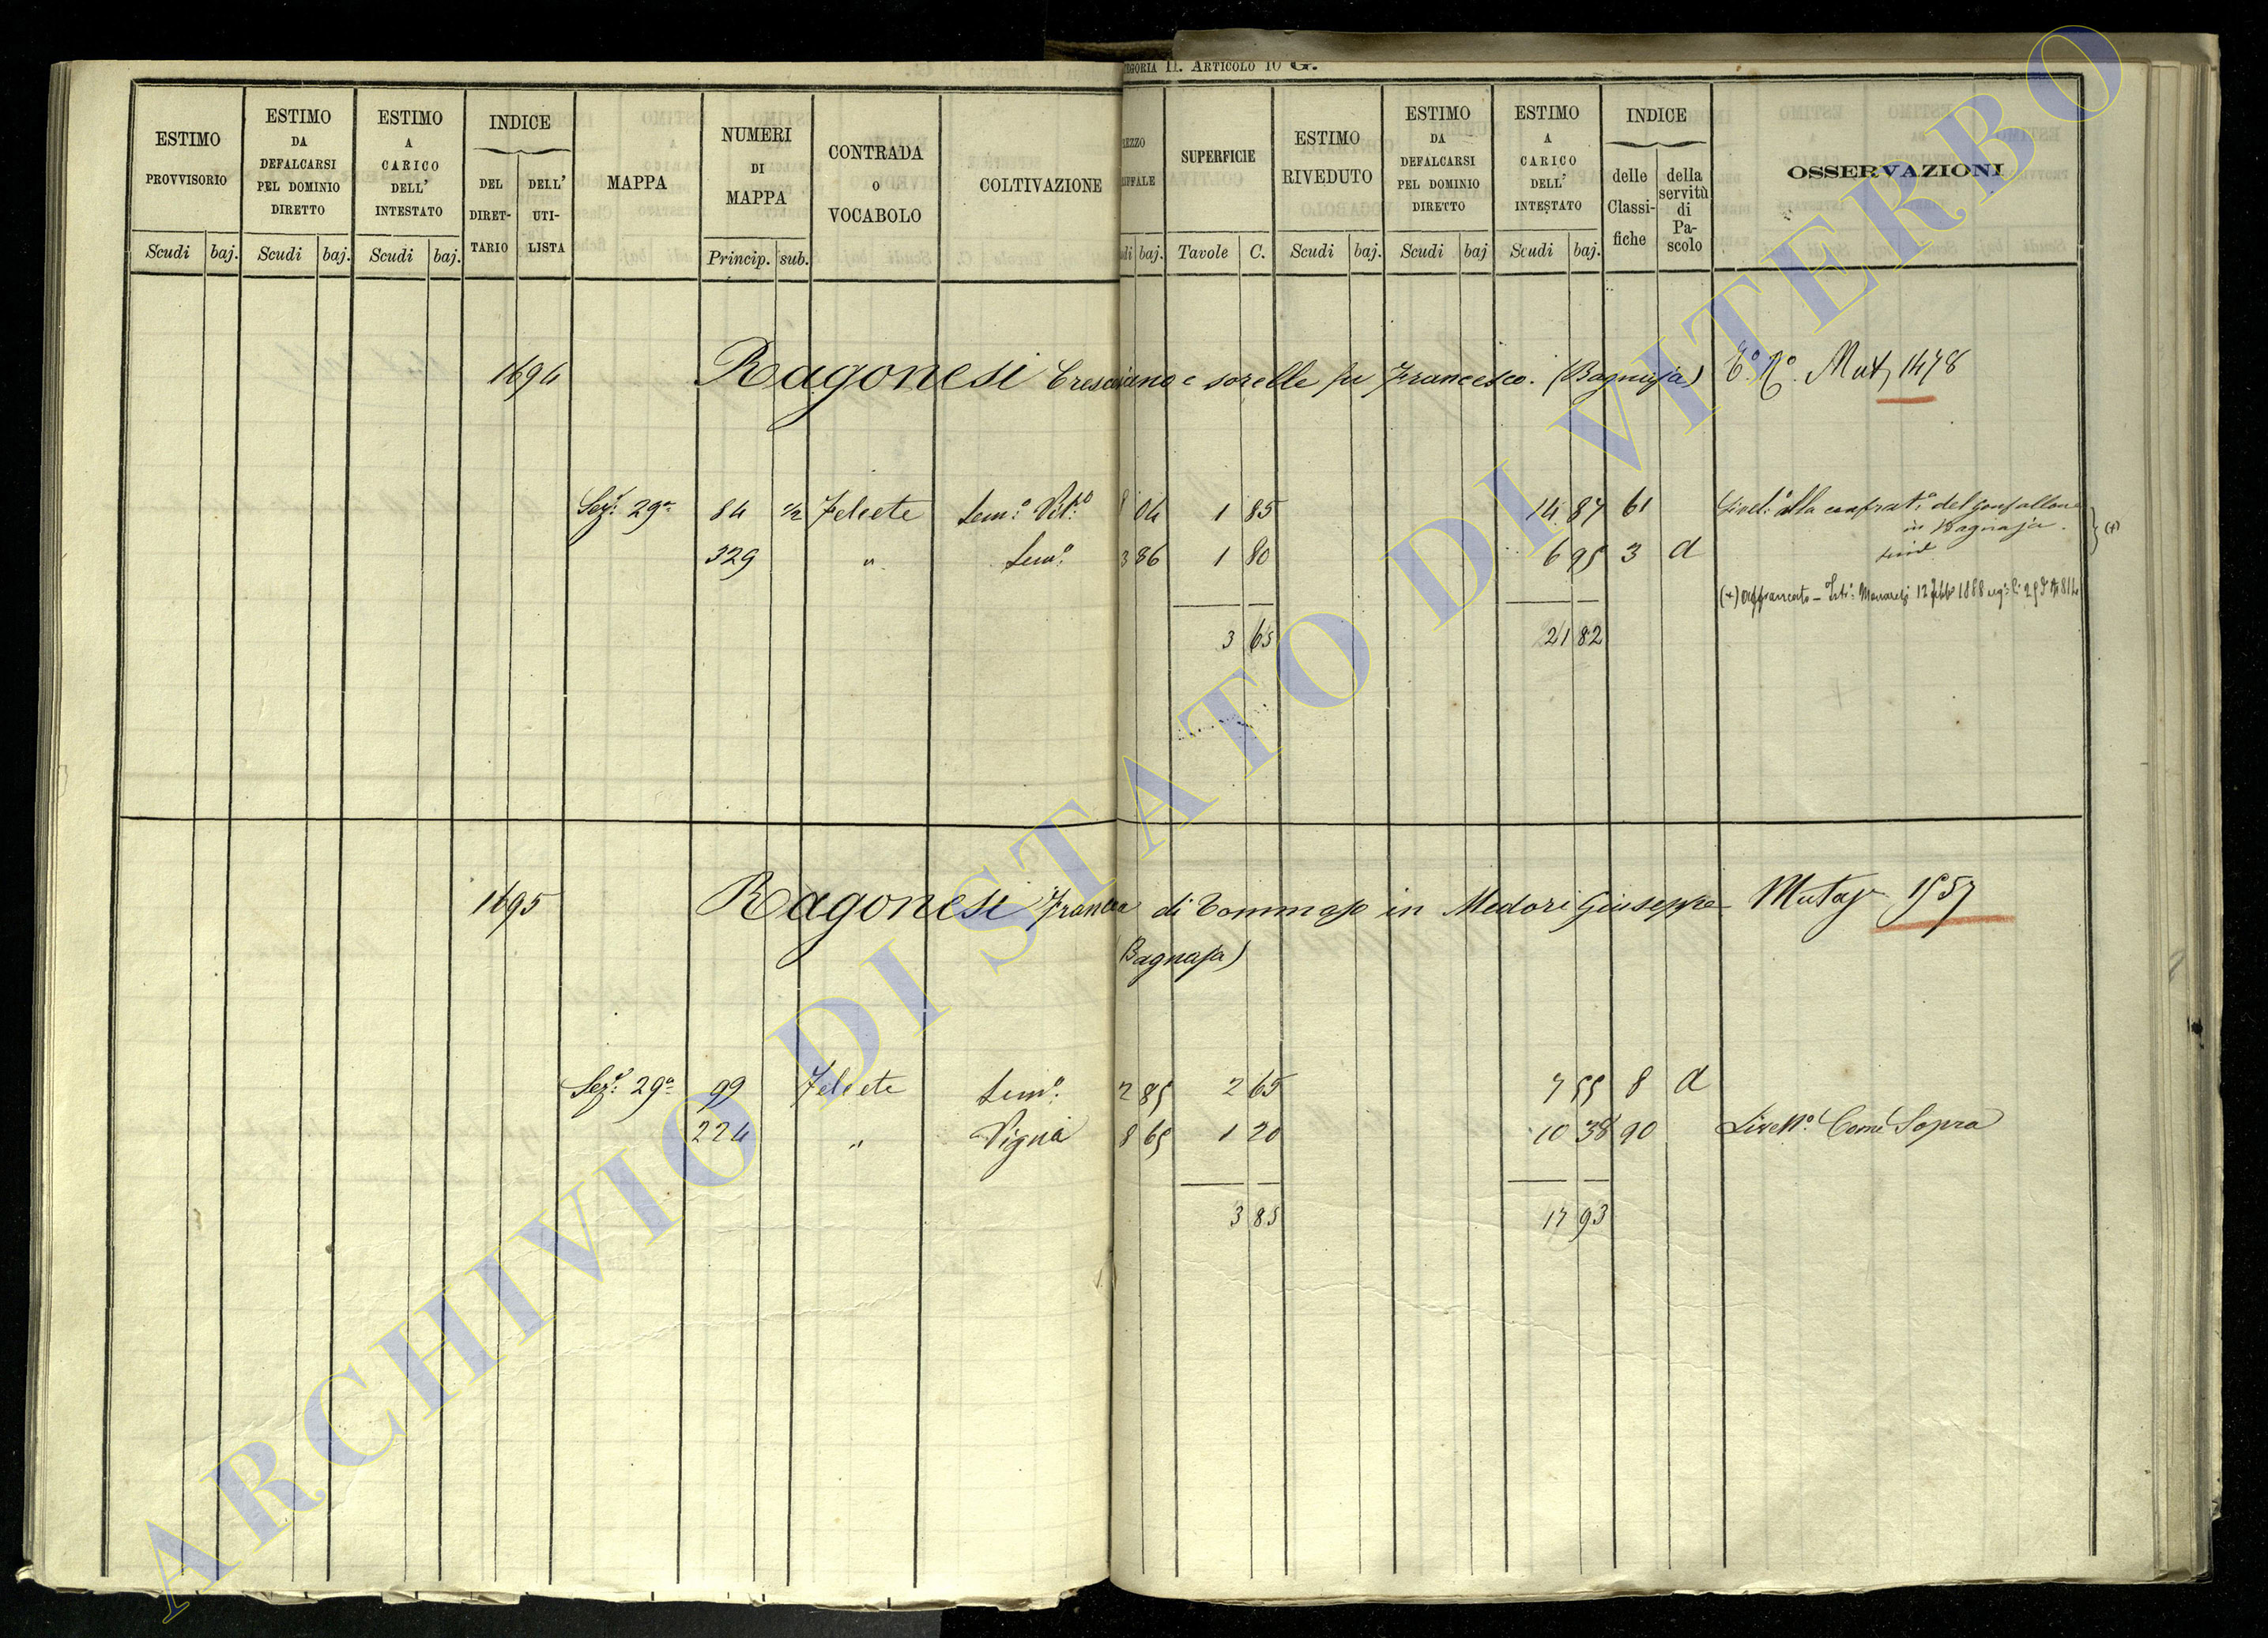 EGORIA II. ARTICOLO 10 G.
ESTIMO PROVVISORIO
Scudi baj.
ESTIMO DA DEFALCARSI PEL DOMINIO DIRETTO
Scudi baj.
ESTIMO A CARICO DELL' INTESTATO
Scudi baj.
INDICE
DEL DIRET- TARIO
DELL' UTI- LISTA
MAPPA
NUMERI DI MAPPA
Princip. sub.
CONTRADA O VOCABOLO
COLTIVAZIONE
REZZO
baj.
SUPERFICIE
Tavole C.
ESTIMO RIVEDUTO
Scudi baj.
ESTIMO DA DEFALCARSI PEL DOMINIO DIRETTO
Scudi baj
ESTIMO A CARICO DELL' INTESTATO
Scudi baj.
INDICE
delle Classi- fiche
della servitù di Pa- scolo
OSSERVAZIONI
1694 Ragonesi e sorelle fu Francesco. (Bagnaja) Mut, 1478
Sez: 29a 84 1/2 Felcete Sem:o Vit:o 8 04 1 85 14 87 61 Livel:o alla confrat:a del Gonfallone
in Bagnaja. (+)
329 " Sem:o 3 86 1 80 6 95 3 d
(+) affrancato - 1888
3 65 21 82
1695 Ragonesi Franca di Tommaso in Medori Giuseppe Mutaz 1557
(Bagnaja)
Sez: 29a 99 Felcete Sem:o 2 85 2 65 7 55 8 d
224 " Vigna 8 65 1 20 10 38 90 Livello: Come Sopra
3 85 17 93
ARCHIVIO DI STATO DI VITERBO